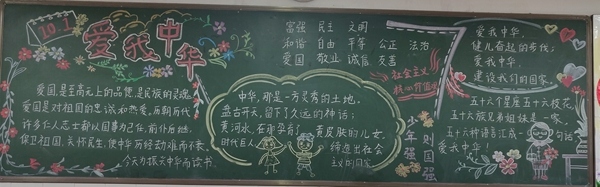 10.1
爱我中华
爱国,是至高无上的品德,是民族的灵魂。
爱国是对祖国的忠诚和热爱。历朝历代
许多仁人志士都以国事为己任,前仆后继,
保卫祖国,关怀民生,使中华历经劫难而不衰。
今天为振兴中华而读书。
富强 民主 文明
和谐 自由 平等 公正 法治
爱国 敬业 诚信 友善
社会主义
核心价值观
中华,那是一方灵秀的土地。
盘古开天,留下了久远的神话;
黄河水,在哺育着黄皮肤的儿女,
时代巨人
缔造出社会
主义的国家
少年强
则国强
爱我中华,
健儿奋起的步伐;
爱我中华,
建设我们的国家。
五十六个星座五十六枝花,
五十六族兄弟姐妹是一家,
五十六种语言汇成一句话
爱我中华!